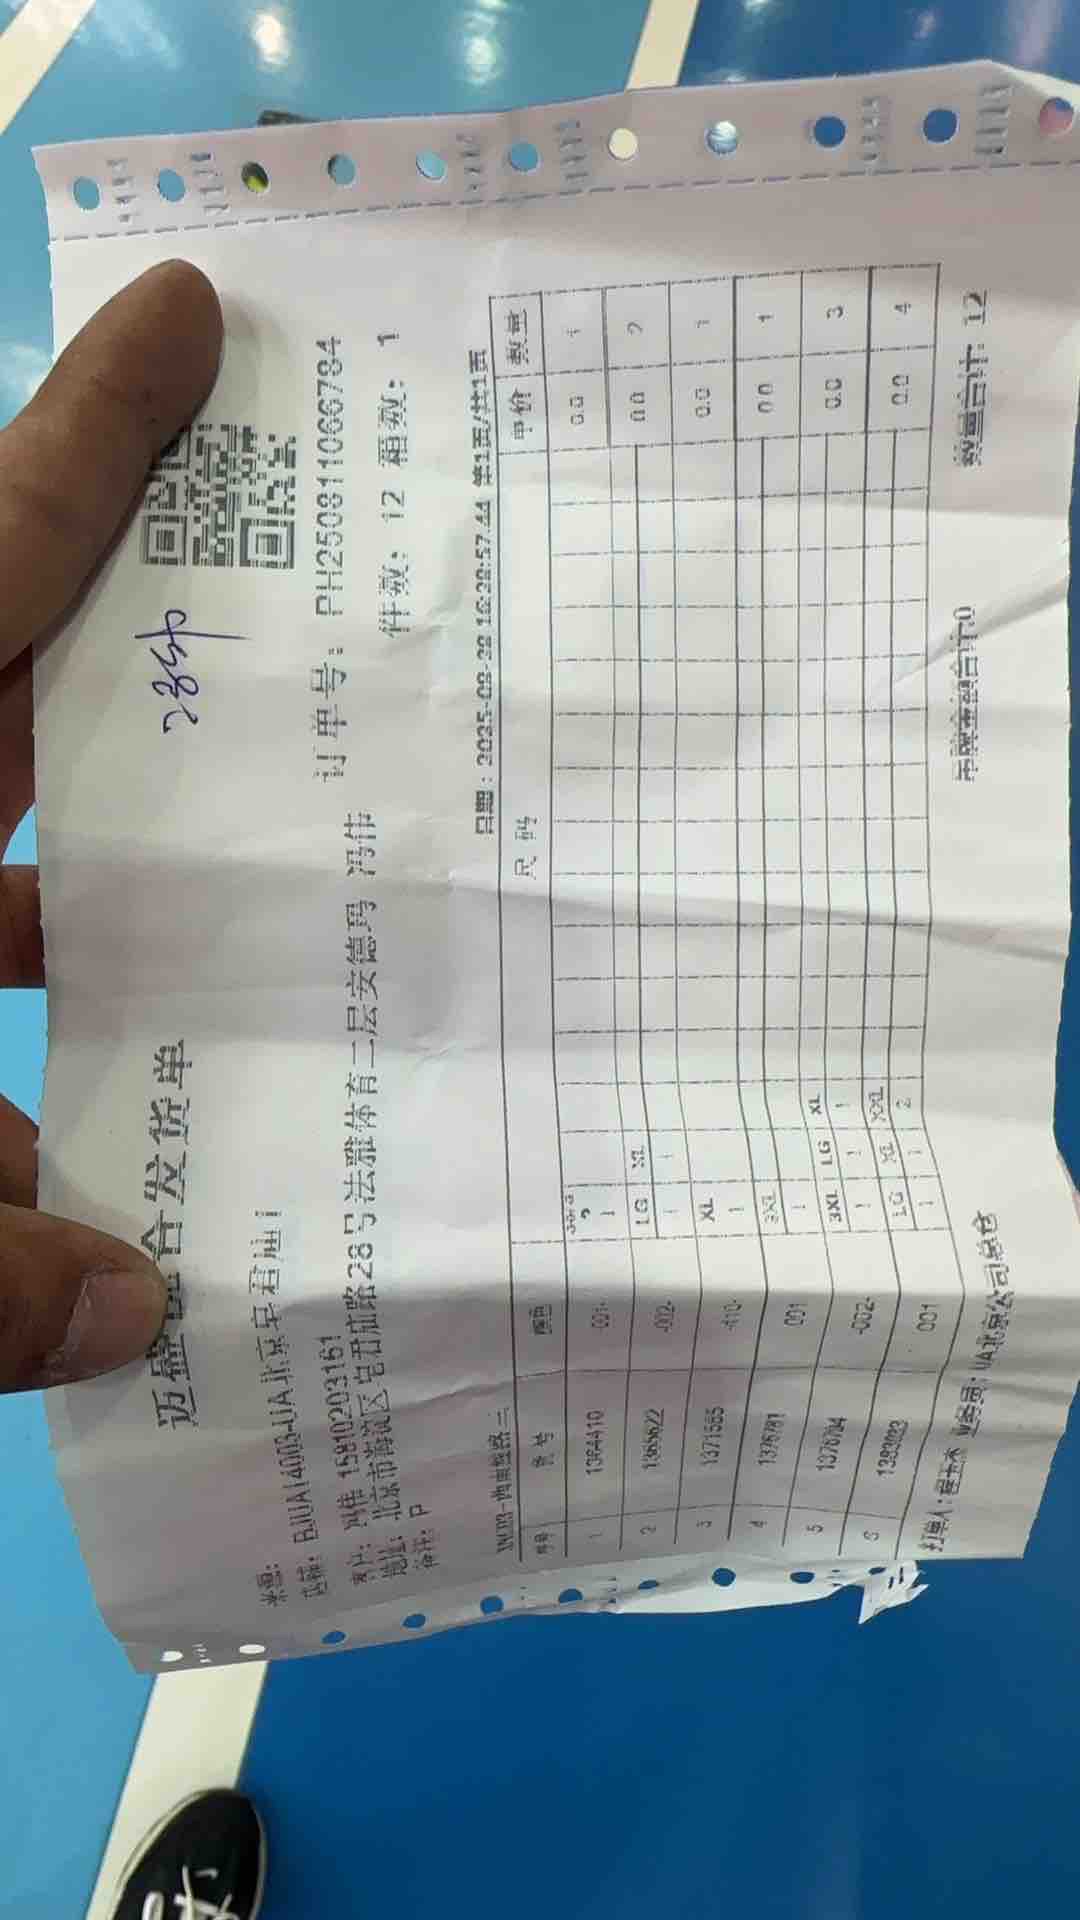 迈盛悦合发货单
冯伟
来源:
店铺: BJUA14003-UA北京皂君庙1
订单号: PH250811066784
客户: 冯伟 15810203161
地址: 北京市海淀区皂君庙路28号法雅体育二层安德玛 冯伟
件数: 12 箱数: 1
备注: P
日期: 2025-08-22 16:28:57.44 第1页/共1页
序号 货号 颜色 尺码 单价 数量
1 1364410 -001- 1 0.0 1
2 -002- LG XL 0.0 2
1 1
3 1371585 -410- XL 0.0 1
1
4 1376781 001 0.0 1
1
5 1376784 -002- 3XL LG XL 0.0 3
1 1 1
6 1383033 001 LG XL XXL 0.0 4
1 1 2
打单人: 业务员: UA北京公司总仓 吊牌金额合计:0 数量合计: 12